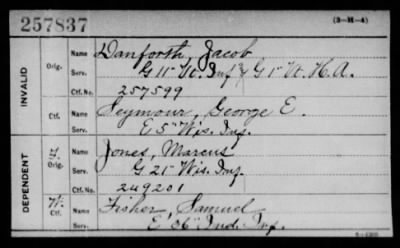 257837
(3-M-4)
INVALID
Orig.
Name Danforth, Jacob
Serv. G 11" Wis. Inf. & G 1" W. H. A.
Ctf. No. 257599
Ctf.
Name Seymour, George E.
Serv. E 5" Wis. Inf.
DEPENDENT
Orig.
Name Jones, Marcus
Serv. G 21" Wis. Inf.
Ctf. No. 249201
W. Ctf.
Name Fisher, Samuel
Serv. E' 36" Ind. Inf.